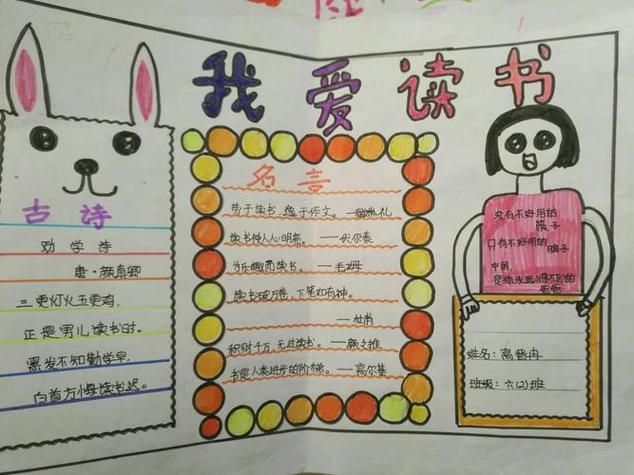 我爱读书
古诗
劝学诗
唐·颜真卿
三更灯火五更鸡，
正是男儿读书时。
黑发不知勤学早，
白首方悔读书迟。
名言
劳于读书，逸于作文。——程端礼
读书使人心明亮。——伏尔泰
为乐趣而读书。——毛姆
读书破万卷，下笔如有神。
——杜甫
积财千万，无过读书。——颜之推
书是人类进步的阶梯。——高尔基
没有不好用的
筷子
只有不好用的
脑子
中国，
是你永远
姓名：高晋冉
班级：六(2)班